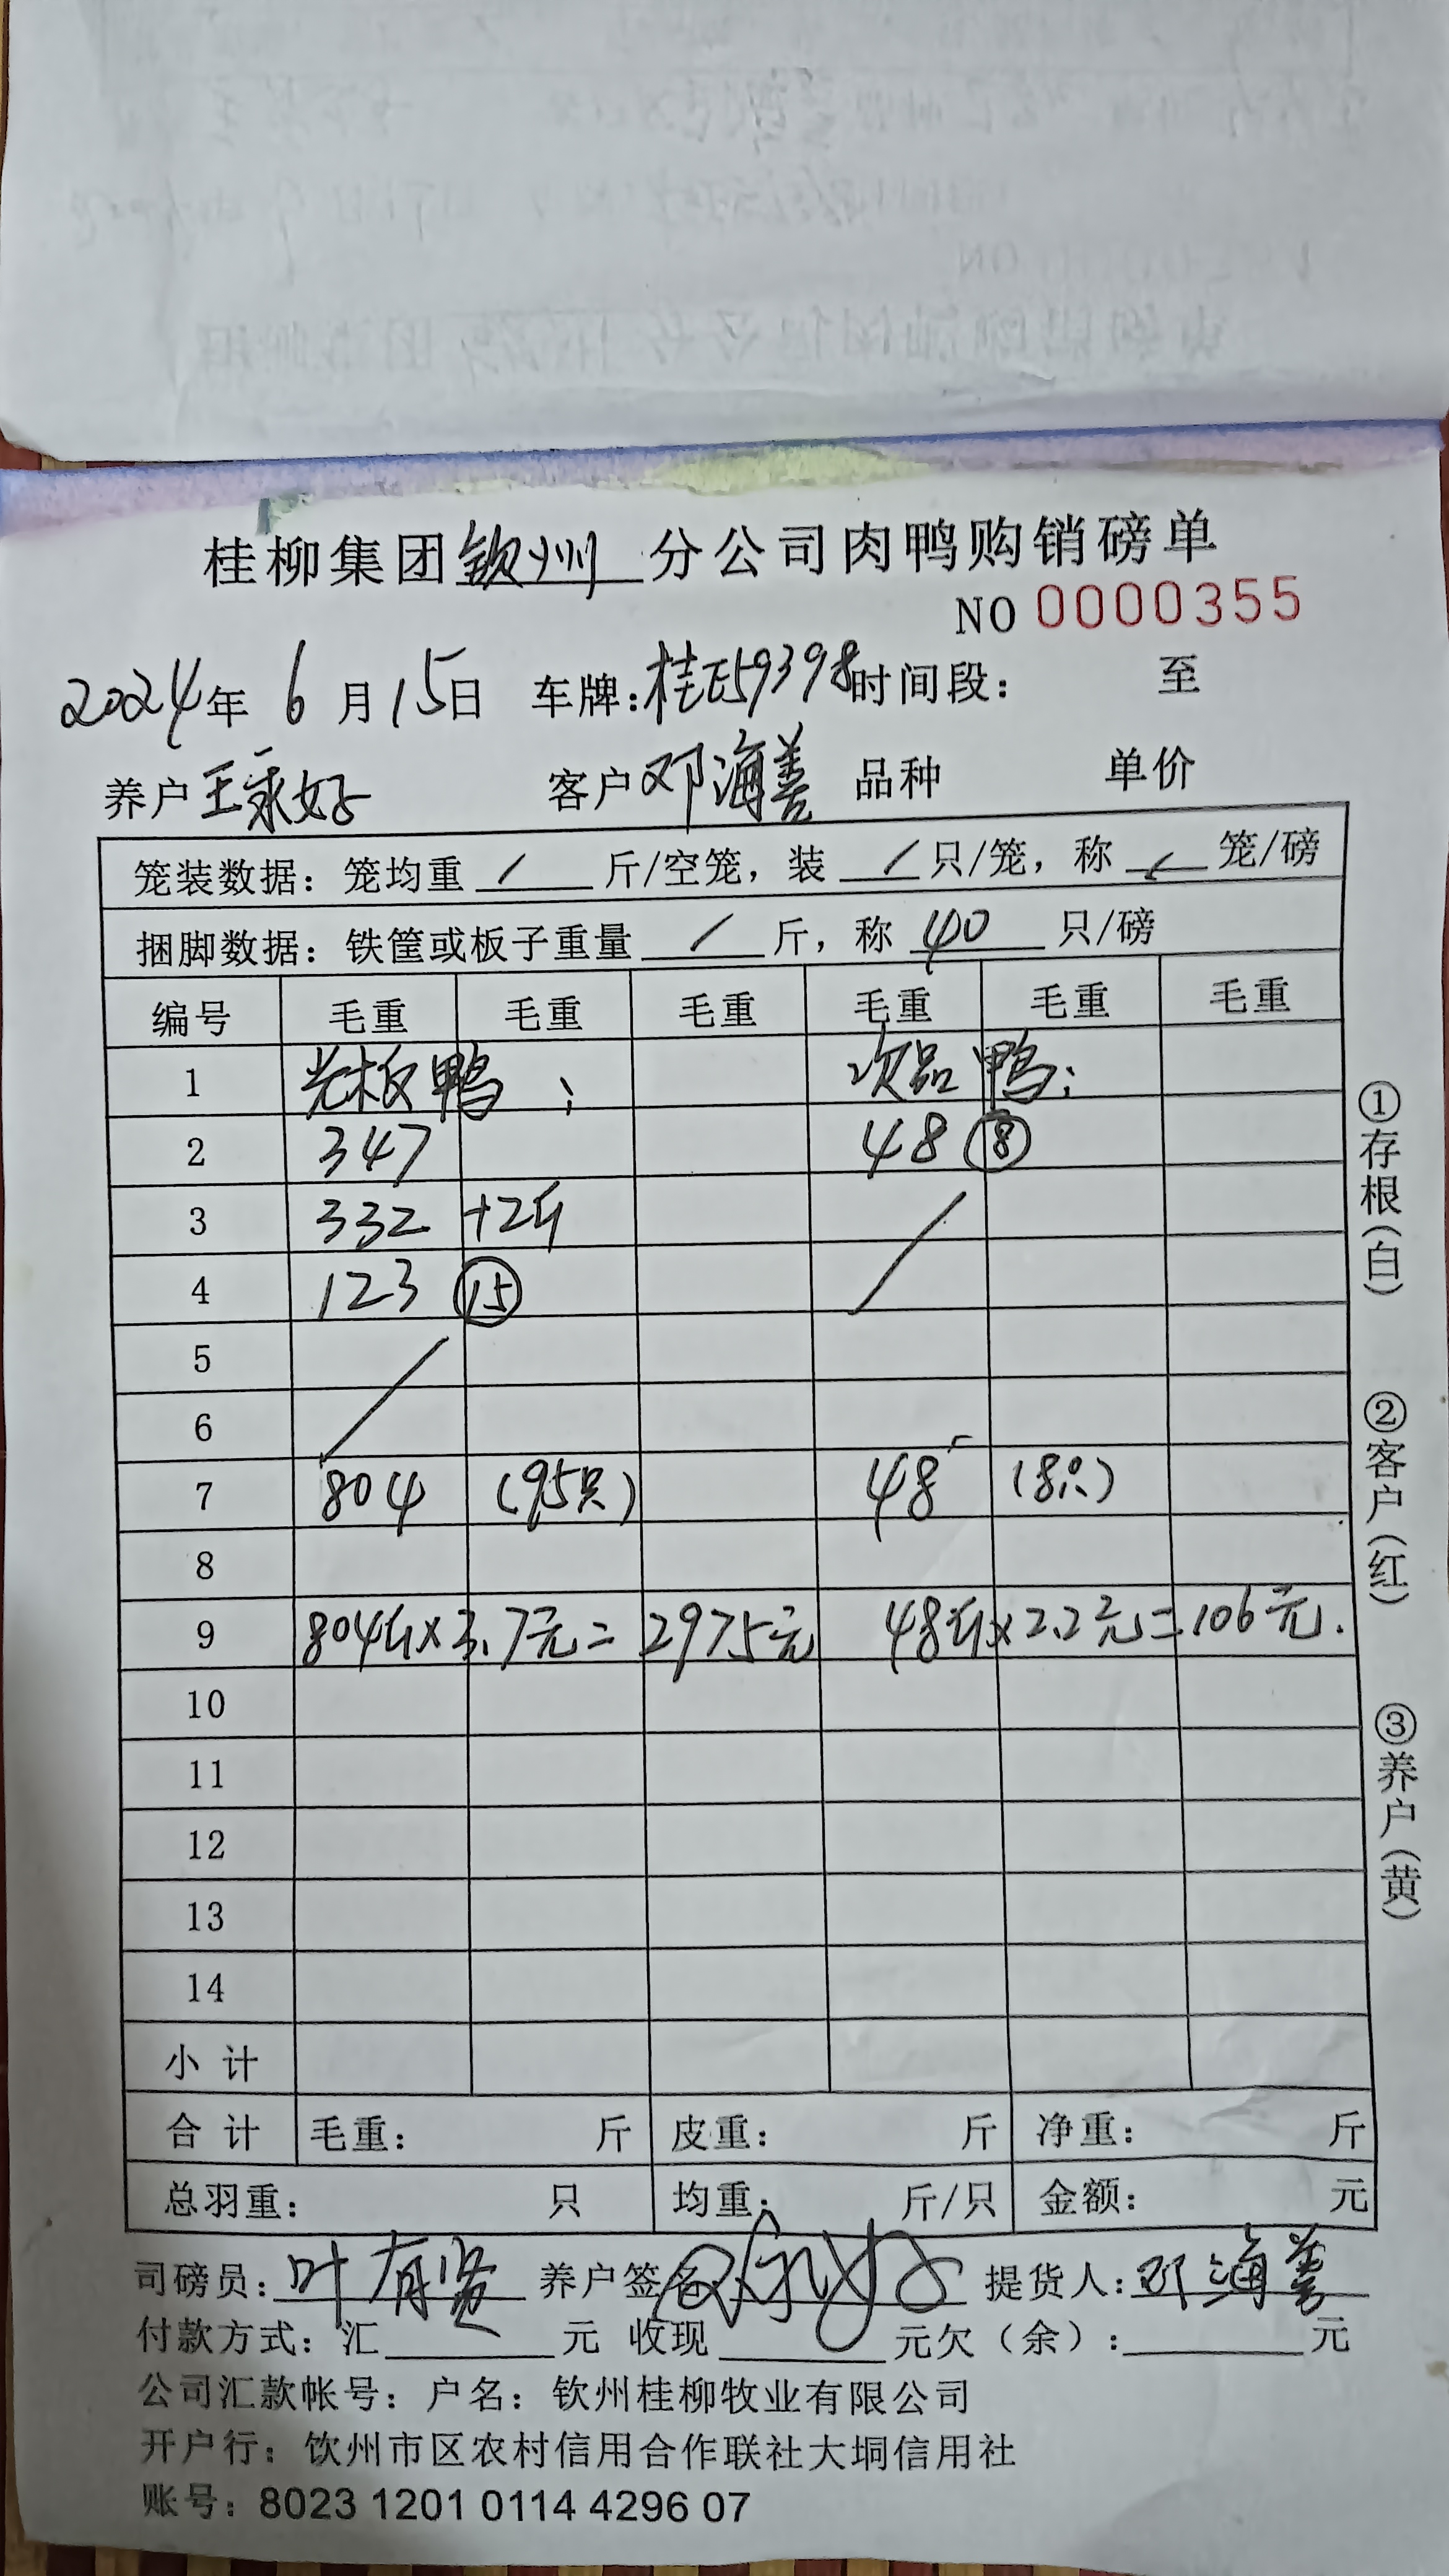 桂柳集团钦州分公司肉鸭购销磅单
NO 0000355
2024年 6月15日 车牌:桂E59398时间段: 至
养户王永好 客户邓海善 品种 单价
笼装数据: 笼均重 / 斤/空笼, 装 / 只/笼, 称 / 笼/磅
捆脚数据: 铁筐或板子重量 / 斤, 称 40 只/磅
编号 毛重 毛重 毛重 毛重 毛重 毛重
1 光板鸭: 次品鸭:
2 347 48 ⑧
3 332 +2斤
4 123 ⑮
5
6
7 804 (95只) 48 (8只)
8
9 804斤×3.7元=2975元 48斤×2.2元=106元.
10
11
12
13
14
小计
合计 毛重: 斤 皮重: 斤 净重: 斤
总羽重: 只 均重: 斤/只 金额: 元
司磅员: 叶有贤 养户签名 王永好 提货人: 邓海善
付款方式: 汇 元 收现 元欠(余): 元
公司汇款帐号: 户名: 钦州桂柳牧业有限公司
开户行: 钦州市区农村信用合作联社大垌信用社
账号: 8023 1201 0114 4296 07
①存根(白)
②客户(红)
③养户(黄)